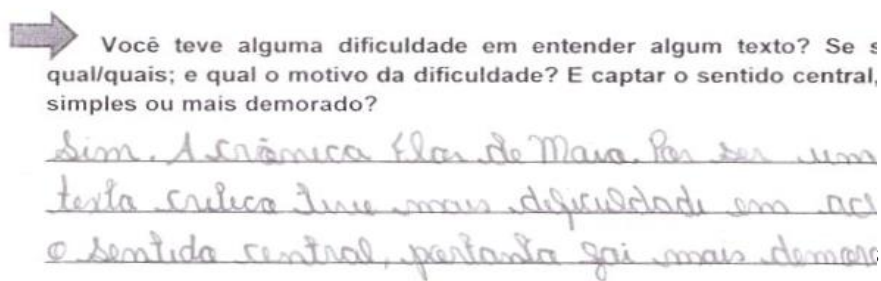 Você teve alguma dificuldade em entender algum texto? Se s
qual/quais; e qual o motivo da dificuldade? E captar o sentido central,
simples ou mais demorado?
Sim. A crônica Flor de Maio. Por ser um
texto crítico tive mais dificuldade em ac
o sentido central, portanto foi mais demora